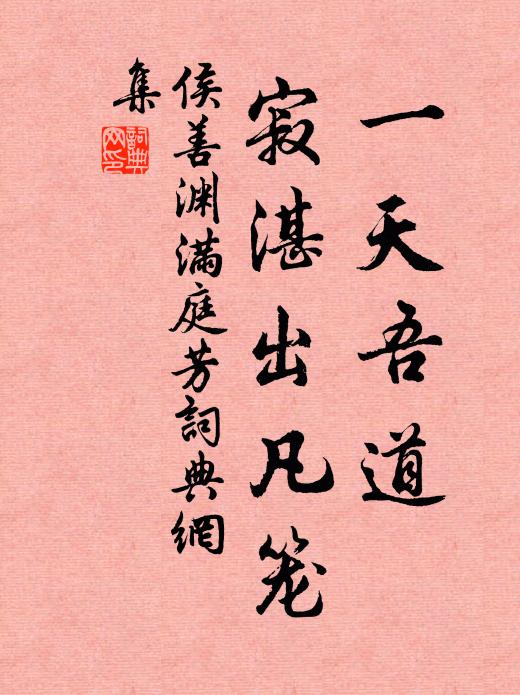 一天吾道
寂湛出凡笼
侯善渊满庭芳詞典網
集
詞典
网印